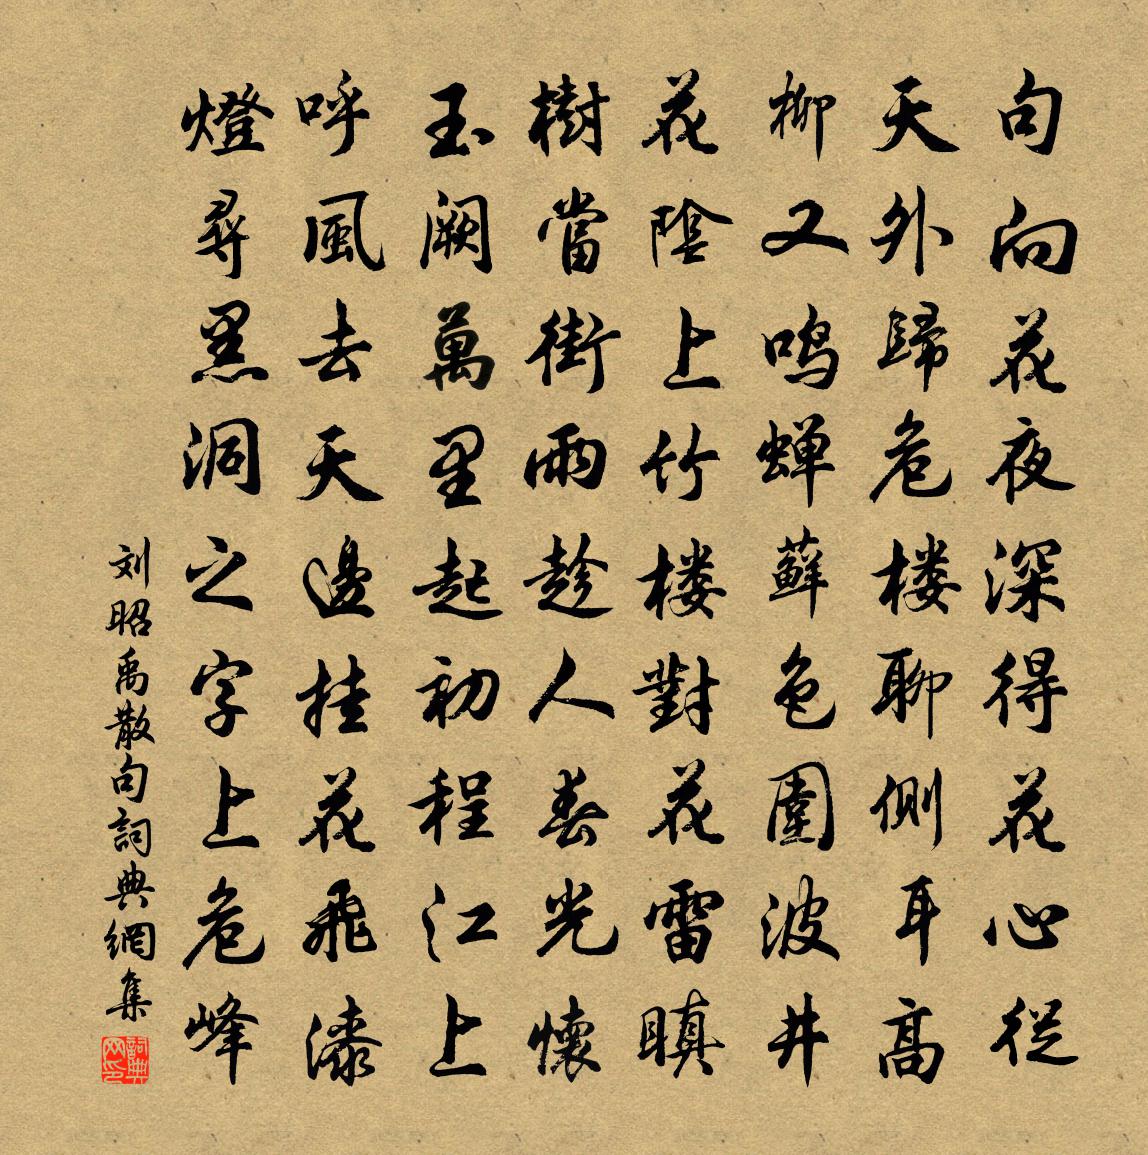 句向花夜深得花心從
天外歸危楼聊側耳高
柳又鸣蝉蘚色圍波井
花陰上竹楼對花雷瞋
樹當街雨趁人春光懷
玉阙萬里起初程江上
呼風去天邊挂花飛漆
燈尋黑洞之字上危峰
刘昭禹散句詞典網集
詞典网印